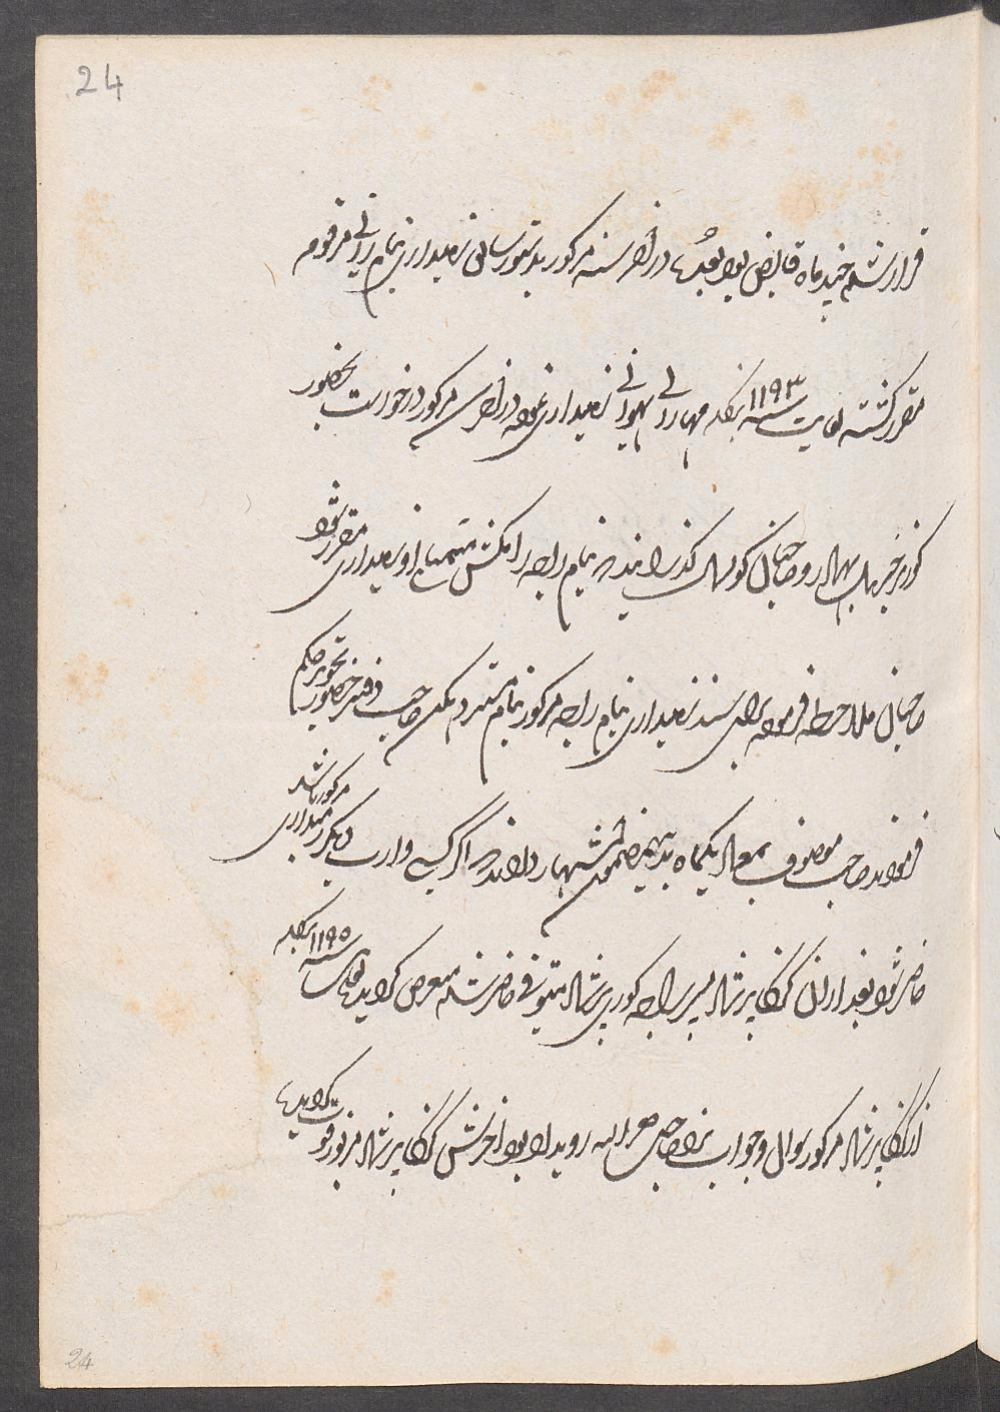 24
قرار شده چند ماه قابض بود بعده در آخر سنه مذکور بدستور سابق زمینداری بنام رانی مرقوم
مقرر گشته لغایت سنه ۱۱۹۳ بنگله مهارانی بهوانی زمینداری نموده در آخر مذکور درخواست بحضور
گورنر جنرل بهادر و صاحبان کونسل گذرانیدند بنام راجه رامکشن متبنی او زمینداری مقرر شود
صاحبان ملاحظه فرموده برای سند زمینداری بنام راجه مذکور بنام صاحب دفتر حضور تجویز حکم
فرمودند صاحب موصوف بمعیاد یکماه بدین مضمون اشتهار دادند اگر کسی وارث دیگر زمینداری مذکور باشد
حاضر شود بعد ازان گنگا پرشاد پسر راجه گوری پرشاد متوفی حاضر شده معرض گردید لغایت سنه ۱۱۹۵ بنگله
از گنگا پرشاد مذکور سوال و جواب نزد صاحبان رویداد بود آخرش گنگا پرشاد مزبور فوت گردید
24